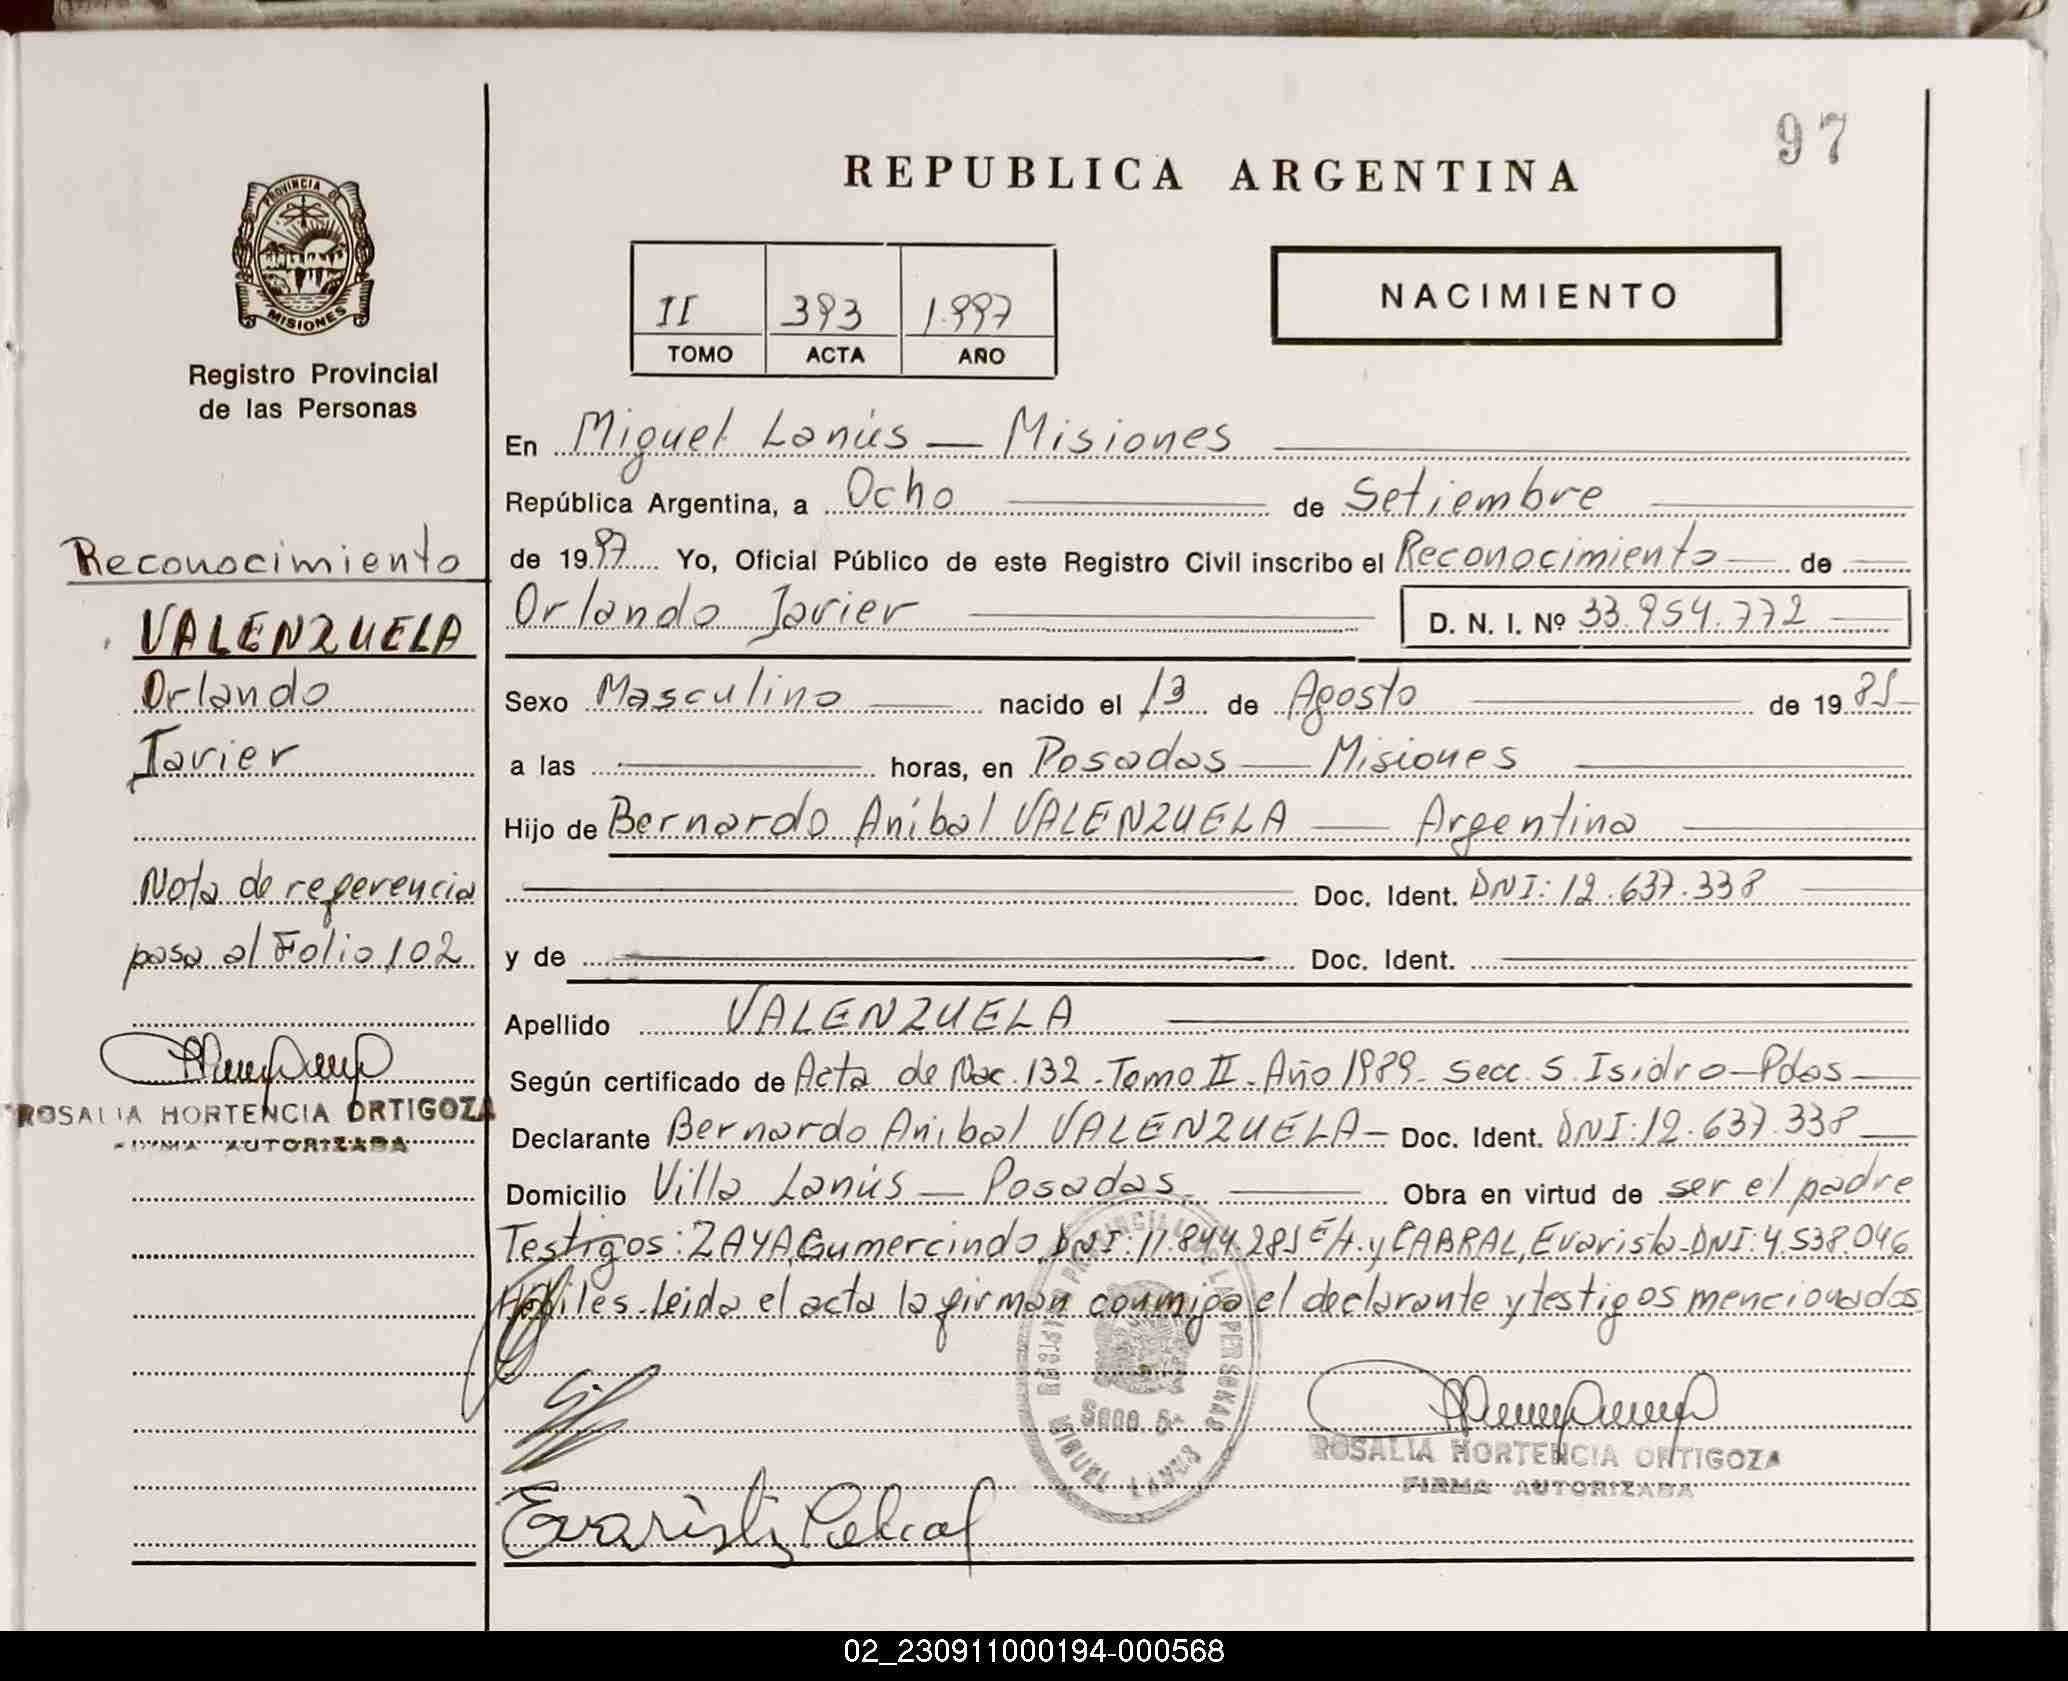 97
REPUBLICA ARGENTINA
PROVINCIA DE
MISIONES
Registro Provincial
de las Personas
II 393 1.997
TOMO ACTA AÑO
NACIMIENTO
En Miguel Lanús — Misiones
República Argentina, a Ocho de Setiembre
de 1997 Yo, Oficial Público de este Registro Civil inscribo el Reconocimiento de
Orlando Javier D. N. I. Nº 33.954.772
Sexo Masculino nacido el 13 de Agosto de 1985
a las horas, en Posadas — Misiones
Hijo de Bernardo Aníbal VALENZUELA — Argentino
Doc. Ident. DNI: 12.637.338
y de Doc. Ident.
Apellido VALENZUELA
Según certificado de Acta de Nac. 132 - Tomo II - Año 1989 - Secc. S. Isidro - Pdas
Declarante Bernardo Anibal VALENZUELA - Doc. Ident. DNI: 12.637.338
Domicilio Villa Lanús — Posadas Obra en virtud de ser el padre
Testigos: ZAYA, Gumercindo DNI: 11.844.285 y CABRAL, Evaristo - DNI: 4.538.046
Hábiles. Leida el acta la firman conmigo el declarante y testigos mencionados
Evaristo Cabral
ROSALIA HORTENCIA ORTIGOZA
FIRMA AUTORIZADA
REGISTRO PROVINCIAL DE LAS PERSONAS
MIGUEL LANUS
Reconocimiento
VALENZUELA
Orlando
Javier
Nota de referencia
pasa al Folio 102
ROSALIA HORTENCIA ORTIGOZA
FIRMA AUTORIZADA
02_230911000194-000568